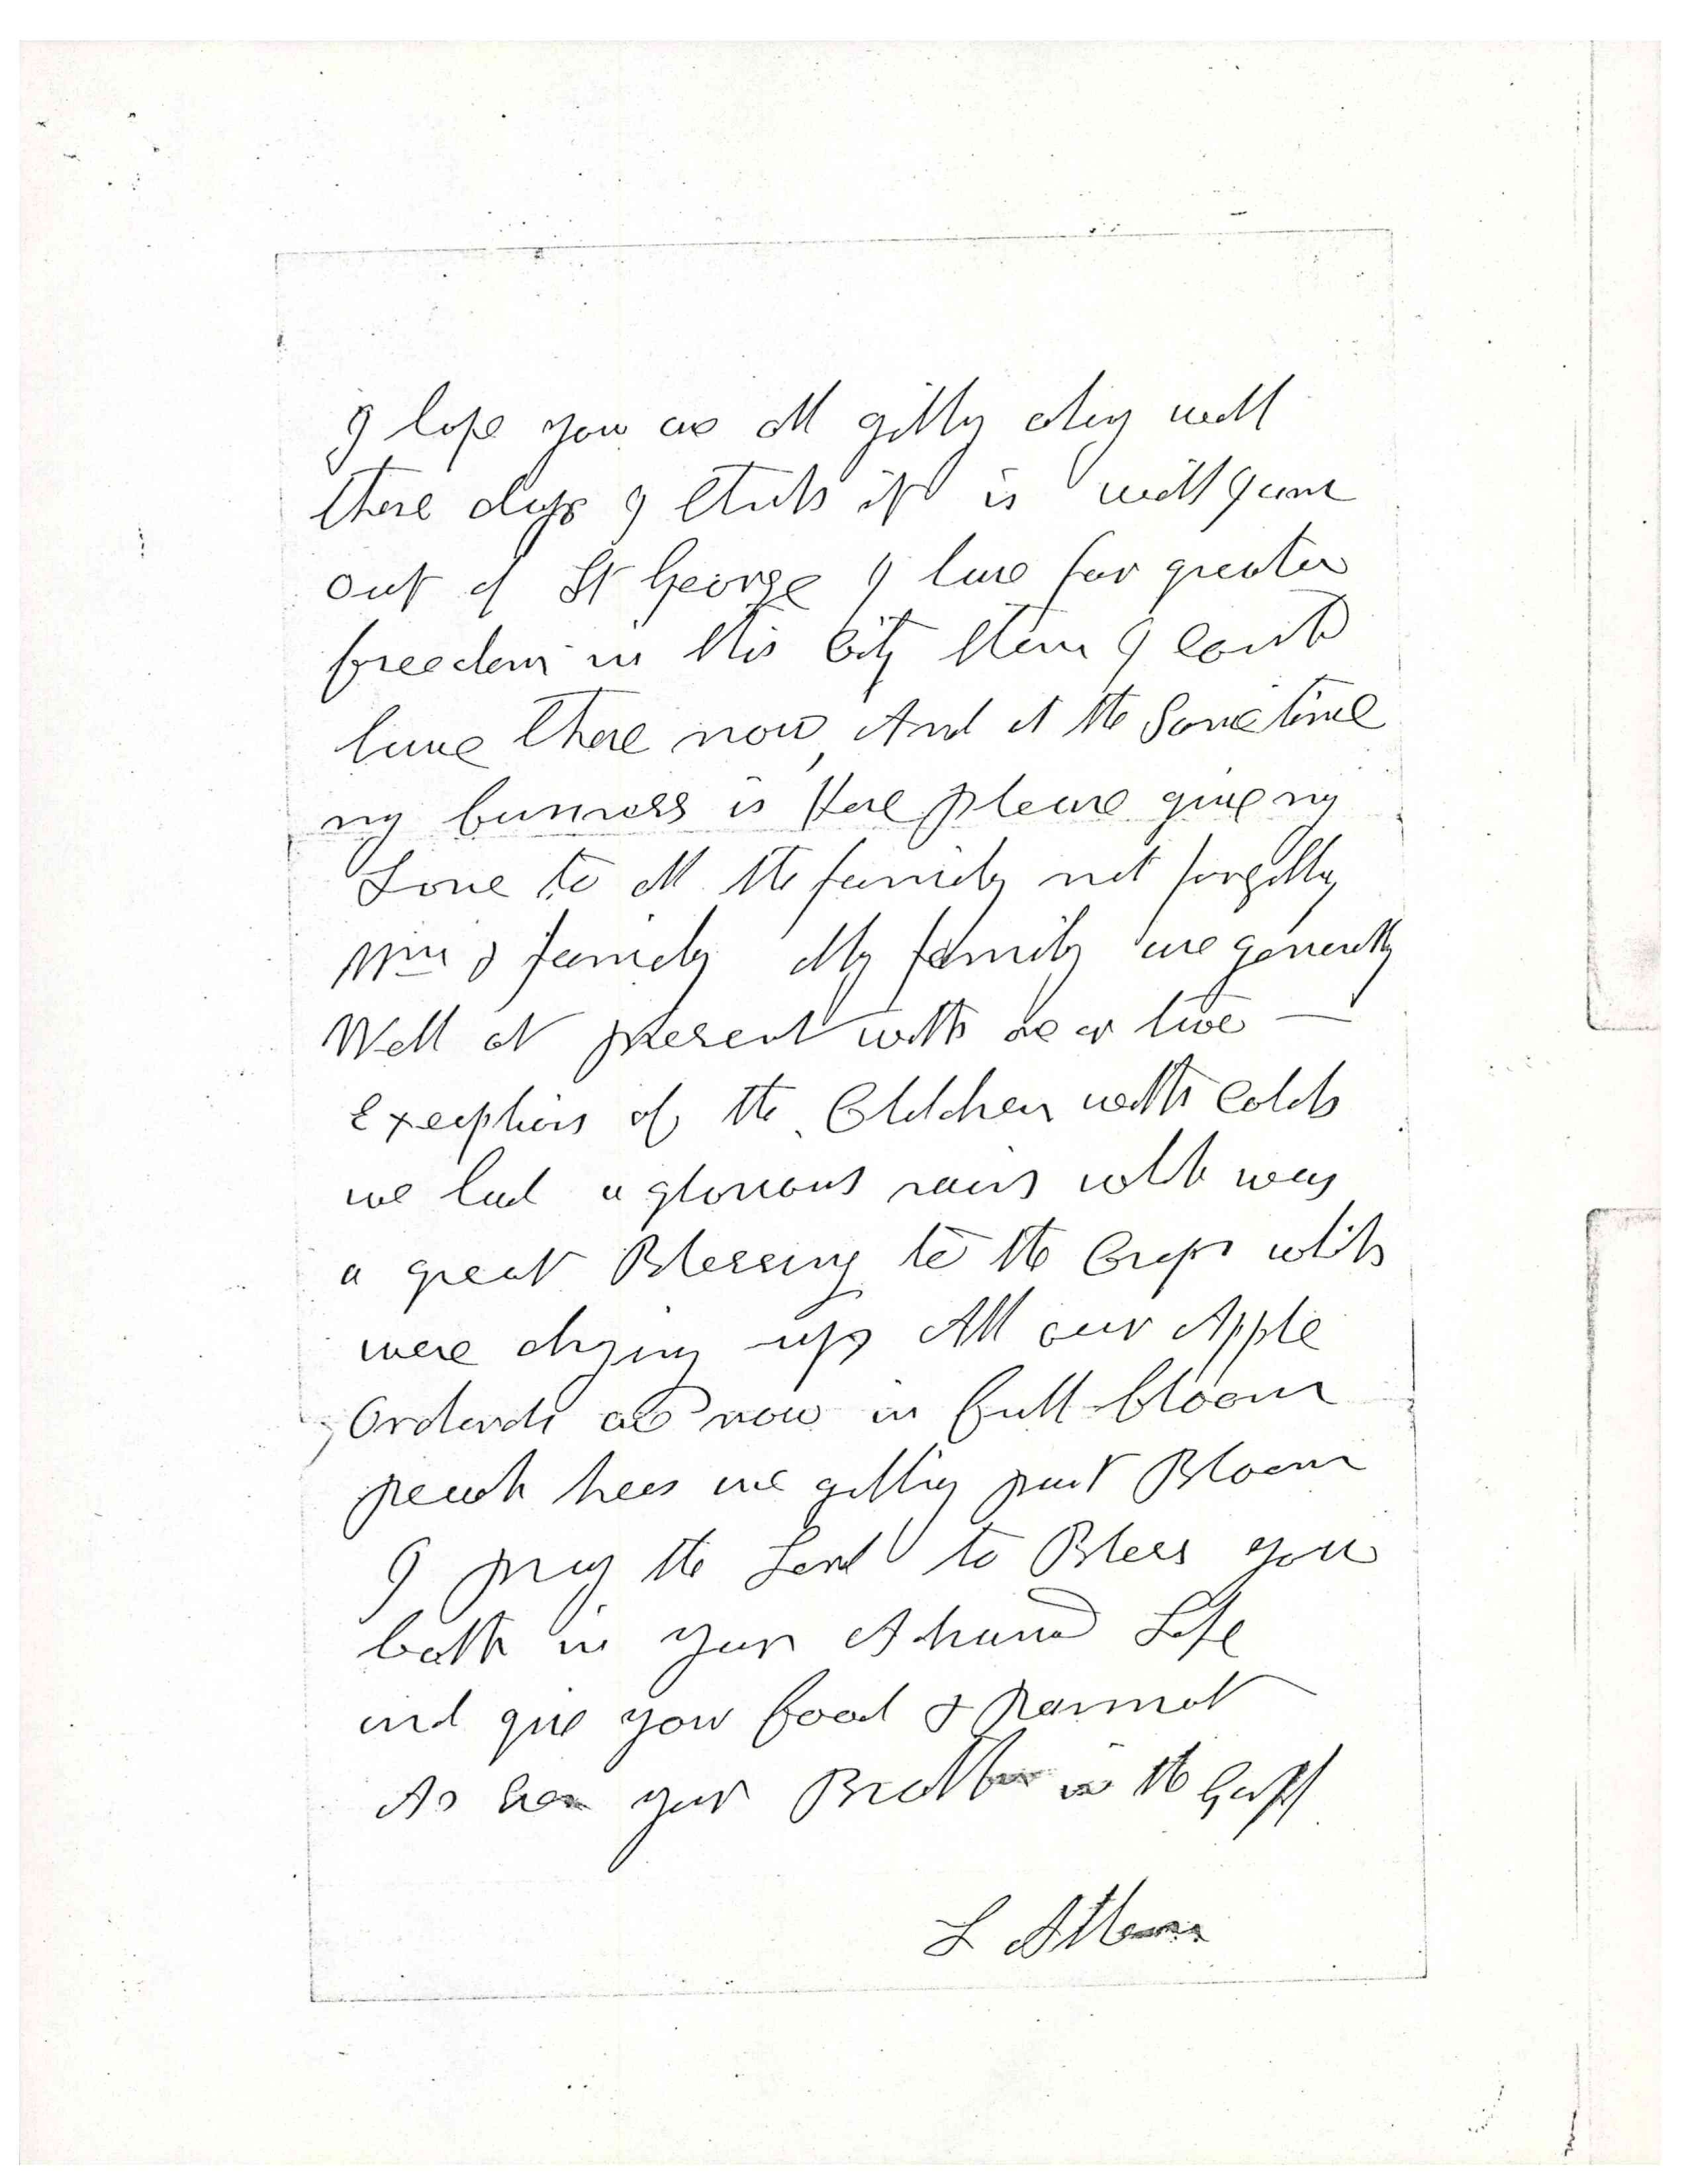 I hope you are all getting along well
these days I think it is well I am
out of St George I have far greater
freedom in this City than I could
have there now, And at the Same time
my business is Here please give my
Love to all the family not forgetting
Wm & family My family are generally
Well at present with one or two —
Exceptions of the Children with Colds
we had a glorious rain which was
a great Blessing to the Crops which
were drying up All our Apple
Orchards are now in full bloom
peach trees are getting past Bloom
I pray the Lord to Bless you
both in your Advanced Life
and give you food & Raiment
As Ever your Brother in the Gospel
L